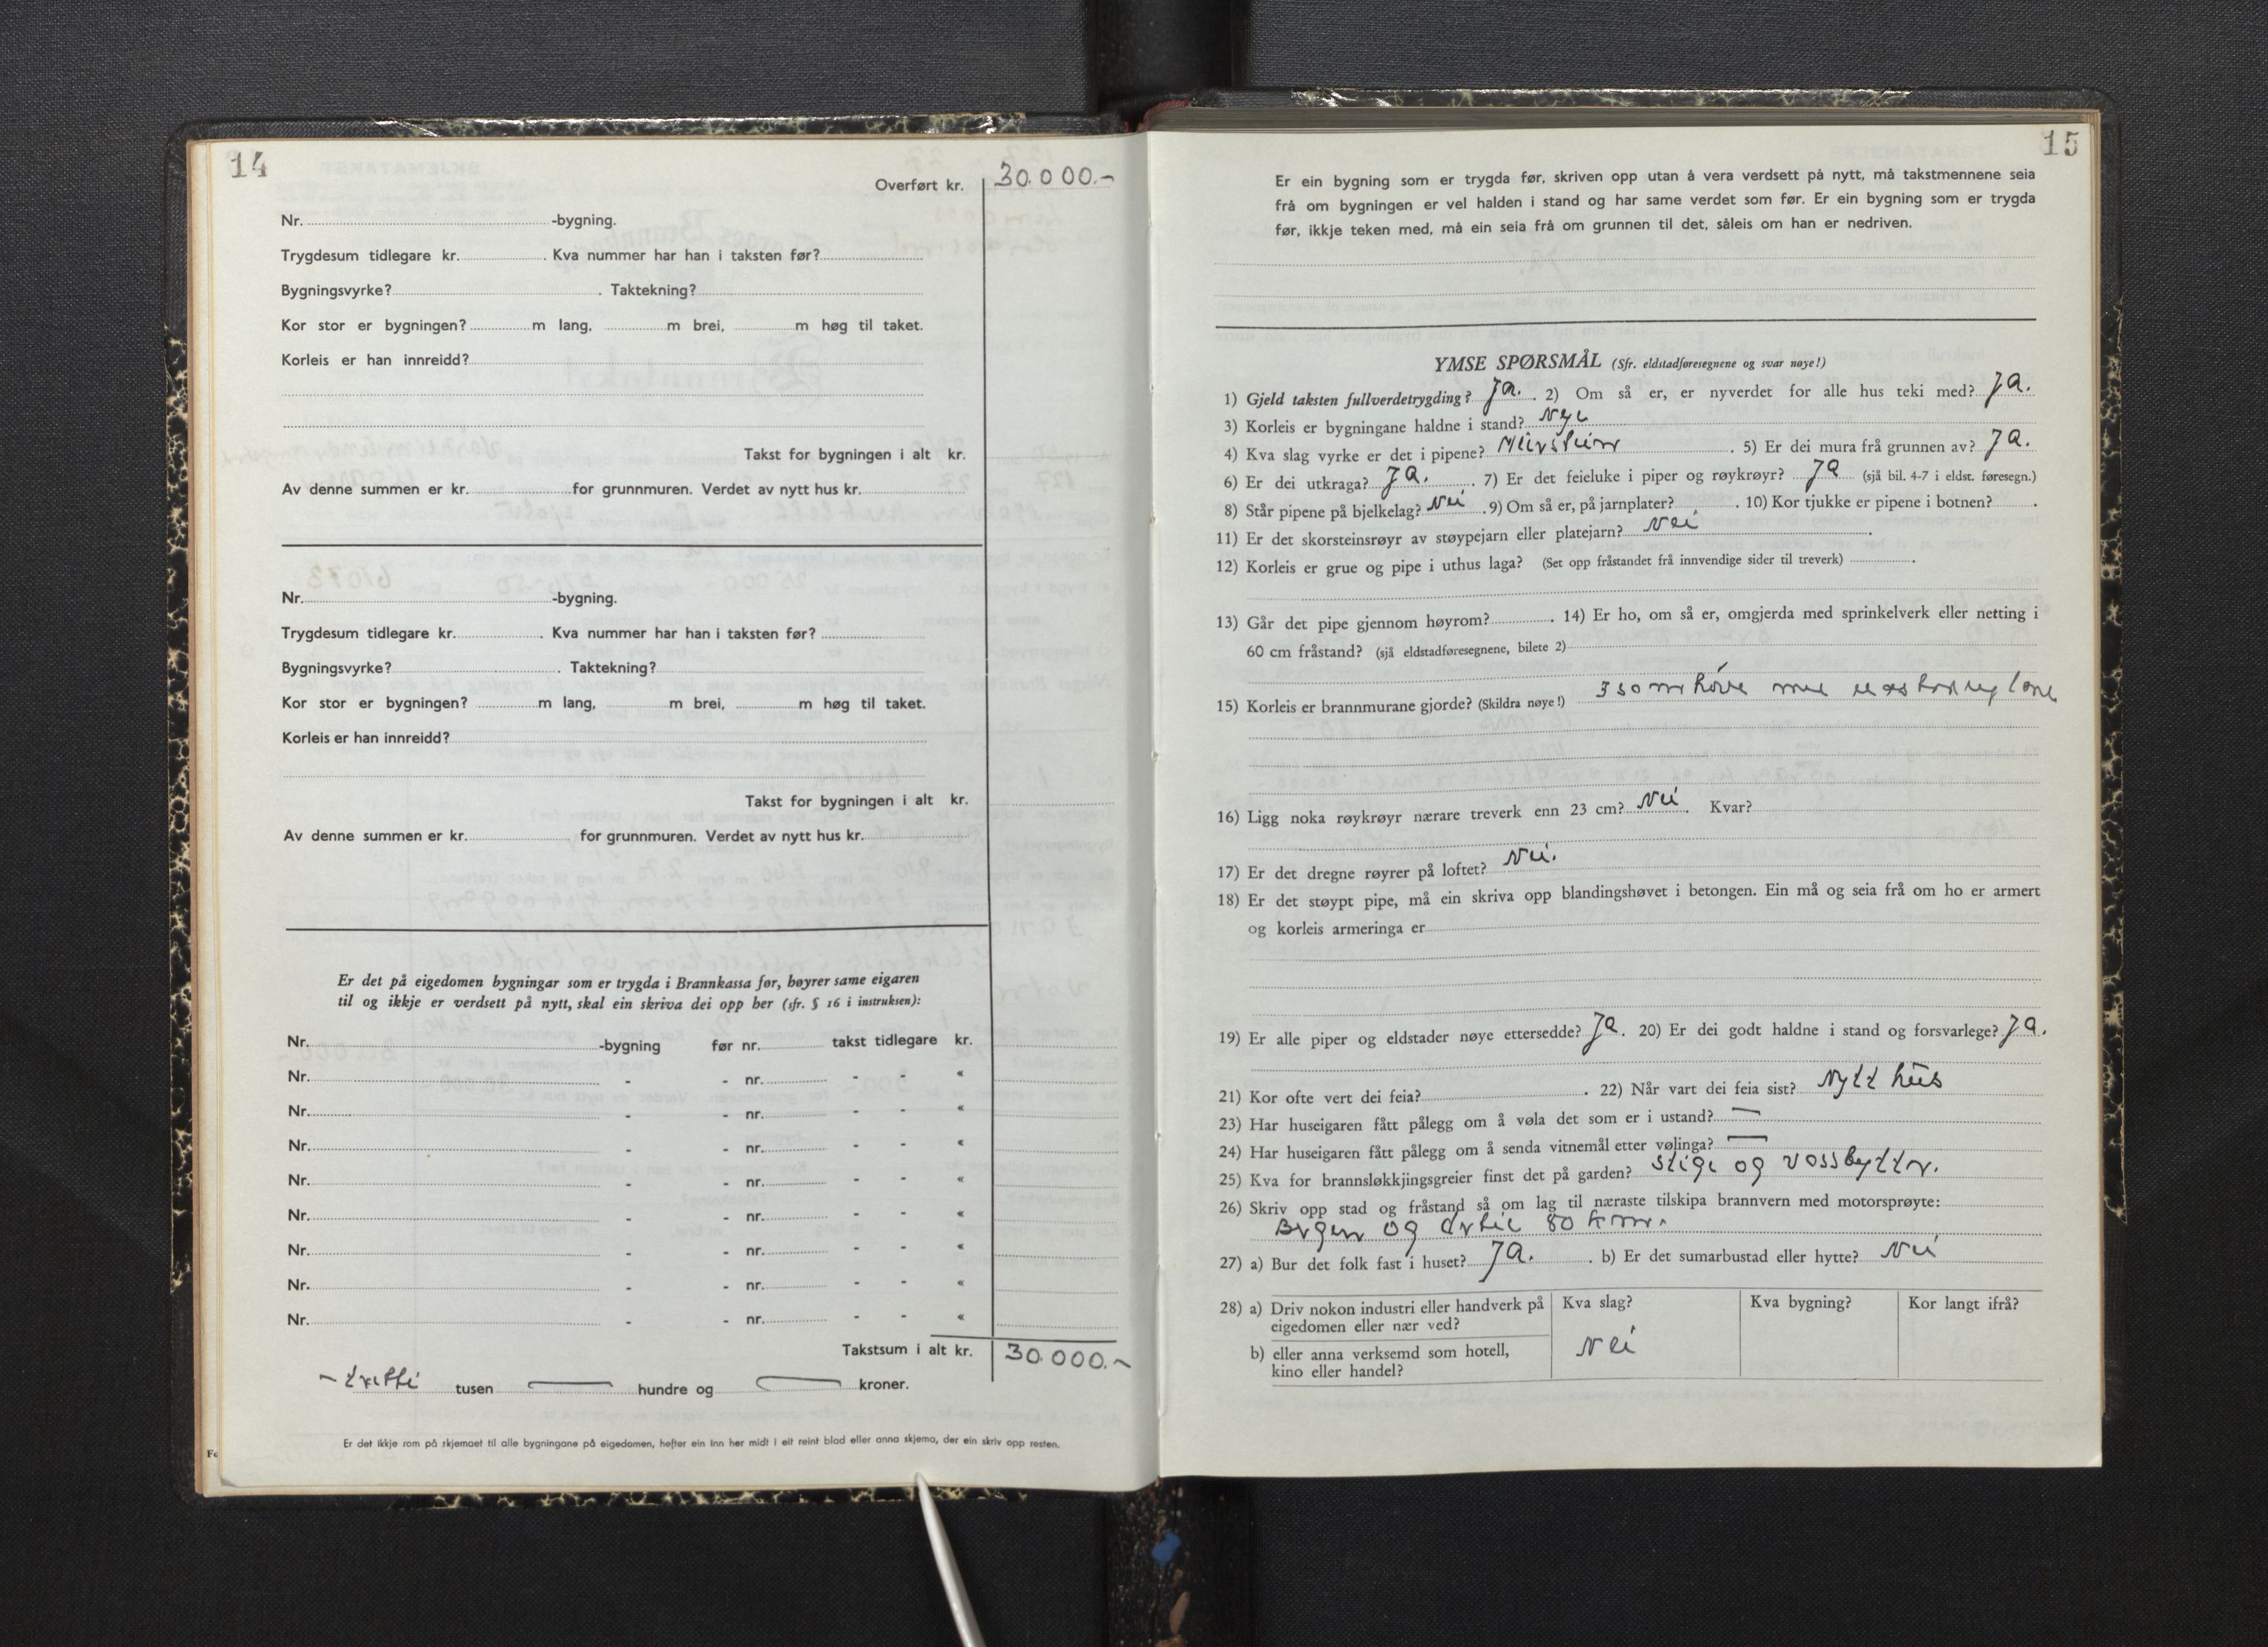 14
Overført kr. 30.000.-
Nr. -bygning.
Trygdesum tidlegare kr. . Kva nummer har han i taksten før?
Bygningsvyrke? . Taktekning?
Kor stor er bygningen? m lang, m brei, m høg til taket.
Korleis er han innreidd?
Takst for bygningen i alt kr.
Av denne summen er kr. for grunnmuren. Verdet av nytt hus kr.
Nr. -bygning.
Trygdesum tidlegare kr. . Kva nummer har han i taksten før?
Bygningsvyrke? . Taktekning?
Kor stor er bygningen? m lang, m brei, m høg til taket.
Korleis er han innreidd?
Takst for bygningen i alt kr.
Av denne summen er kr. for grunnmuren. Verdet av nytt hus kr.
Er det på eigedomen bygningar som er trygda i Brannkassa før, høyrer same eigaren
til og ikkje er verdsett på nytt, skal ein skriva dei opp her (sfr. § 16 i instruksen):
Nr. -bygning før nr. takst tidlegare kr.
Nr. - - nr. - - «
Nr. - - nr. - - «
Nr. - - nr. - - «
Nr. - - nr. - - «
Nr. - - nr. - - «
Nr. - - nr. - - «
Nr. - - nr. - - «
Nr. - - nr. - - «
Takstsum i alt kr. 30.000.-
- tretti tusen — hundre og — kroner.
Er det ikkje rom på skjemaet til alle bygningane på eigedomen, hefter ein inn her midt i eit reint blad eller anna skjema, der ein skriv opp resten.
15
Er ein bygning som er trygda før, skriven opp utan å vera verdsett på nytt, må takstmennene seia
frå om bygningen er vel halden i stand og har same verdet som før. Er ein bygning som er trygda
før, ikkje teken med, må ein seia frå om grunnen til det, såleis om han er nedriven.
YMSE SPØRSMÅL (Sfr. eldstadføresegnene og svar nøye!)
1) Gjeld taksten fullverdetrygding? Ja. . 2) Om så er, er nyverdet for alle hus teki med? Ja.
3) Korleis er bygningane haldne i stand? Nye
4) Kva slag vyrke er det i pipene? Murstein . 5) Er dei mura frå grunnen av? Ja.
6) Er dei utkraga? Ja. . 7) Er det feieluke i piper og røykrøyr? Ja (sjå bil. 4-7 i eldst. føresegn.)
8) Står pipene på bjelkelag? Nei . 9) Om så er, på jarnplater? . 10) Kor tjukke er pipene i botnen? .
11) Er det skorsteinsrøyr av støypejarn eller platejarn? Nei .
12) Korleis er grue og pipe i uthus laga? (Set opp fråstandet frå innvendige sider til treverk) .
13) Går det pipe gjennom høyrom? . 14) Er ho, om så er, omgjerda med sprinkelverk eller netting i
60 cm fråstand? (sjå eldstadføresegnene, bilete 2)
15) Korleis er brannmurane gjorde? (Skildra nøye!) I samhøve
16) Ligg noka røykrøyr nærare treverk enn 23 cm? Nei . Kvar?
17) Er det dregne røyrer på loftet? Nei.
18) Er det støypt pipe, må ein skriva opp blandingshøvet i betongen. Ein må og seia frå om ho er armert
og korleis armeringa er
19) Er alle piper og eldstader nøye ettersedde? Ja . 20) Er dei godt haldne i stand og forsvarlege? Ja.
21) Kor ofte vert dei feia? . 22) Når vart dei feia sist? Nytt hus
23) Har huseigaren fått pålegg om å vøla det som er i ustand? —
24) Har huseigaren fått pålegg om å senda vitnemål etter vølinga? —
25) Kva for brannsløkkjingsgreier finst det på garden? Stige og vassbytter.
26) Skriv opp stad og fråstand så om lag til næraste tilskipa brannvern med motorsprøyte:
Bergen og 80 km.
27) a) Bur det folk fast i huset? Ja. . b) Er det sumarbustad eller hytte? Nei
28) a) Driv nokon industri eller handverk på eigedomen eller nær ved? Kva slag? Kva bygning? Kor langt ifrå?
b) eller anna verksemd som hotell, kino eller handel? Nei